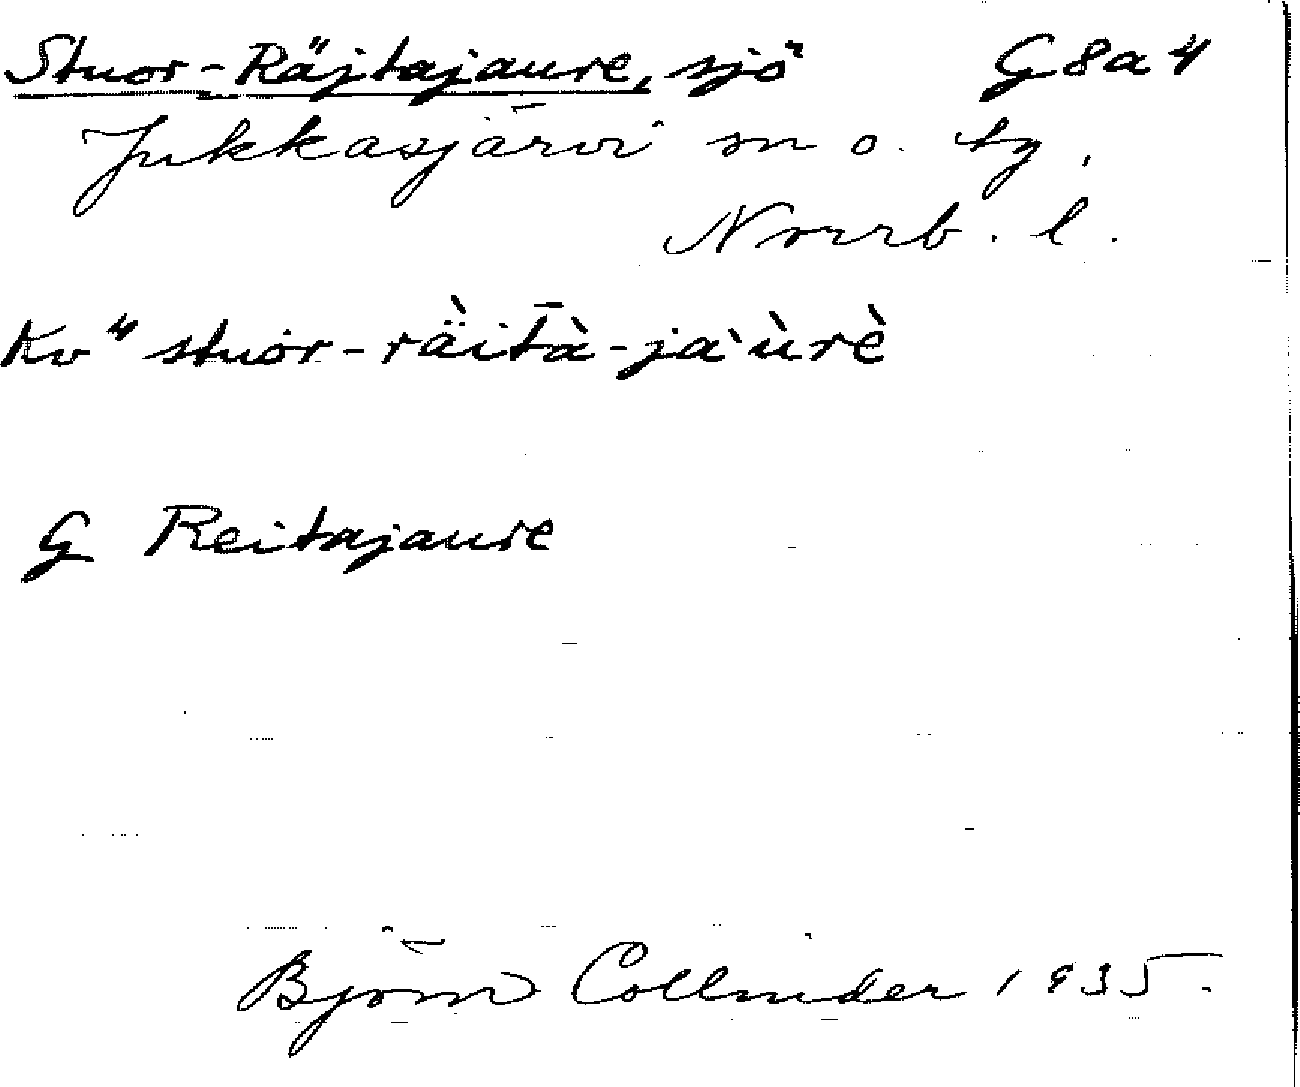 Stuor-Räjtajaure, sjö G8a4
Jukkasjärvi sn o. tg,
Norrb. l.
Kv" stuor-rä̀ità-ja`ùrè
G Reitajaure
Björn Collinder 1935.